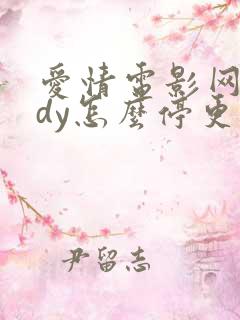 愛情電影网
dy怎麼停更
尹留志